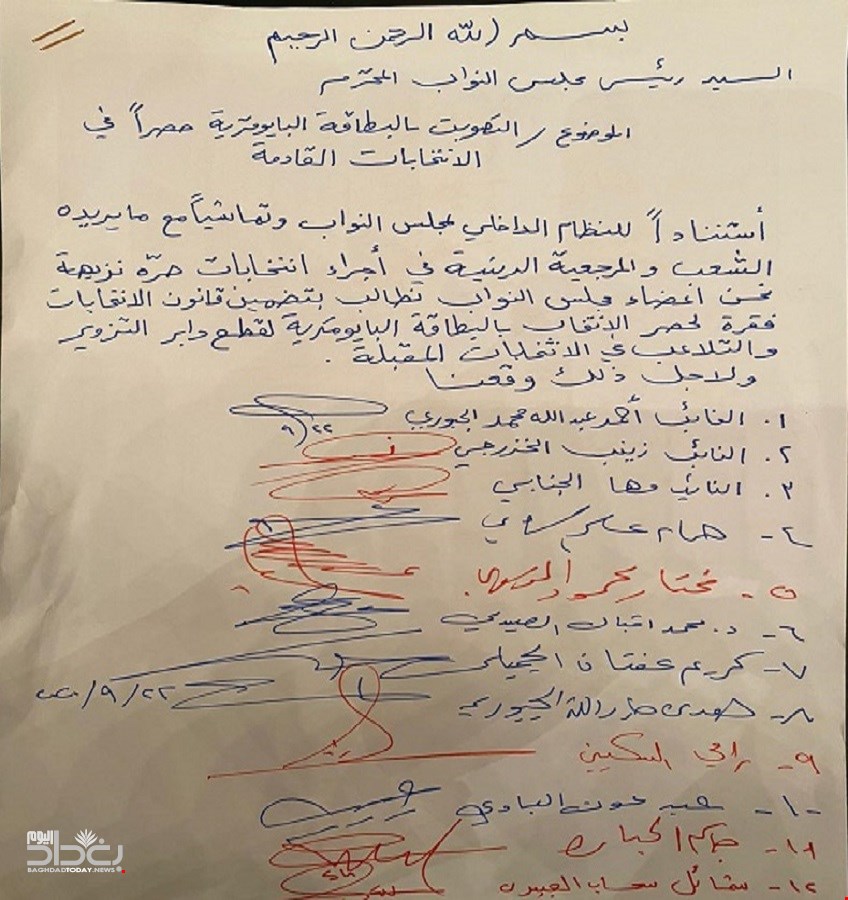 بسم الله الرحمن الرحيم
السيد رئيس مجلس النواب المحترم
الموضوع / التصويت بالبطاقة البايومترية حصراً في
الانتخابات القادمة
أستناداً للنظام الداخلي لمجلس النواب وتماشياً مع مايريده
الشعب والمرجعية الدينية في أجراء انتخابات حرّه نزيهة
نحن اعضاء مجلس النواب نطالب بتضمين قانون الانتخابات
فقرة لحصر الانتخاب بالبطاقة البايومترية لقطع دابر التزوير
والتلاعب في الانتخابات المقبلة .
ولاجل ذلك وقعنا
١. النائب أحمد عبدالله محمد الجبوري
٩/٢٢
٢. النائب زينب الخزرجي
٣. النائب مها الجنابي
٤-
٥- مختار محمود الموسوي
٦- د. محمد اقبال الصيدلي
٧- كريم عفتان الجميلي
٨- هدى جارالله الجبوري ٩/٢٢
٩- رامي السكيني
١٠- عبد عون العبادي
١١-
١٢-
بغداد اليوم
BAGHDADTODAY.NEWS